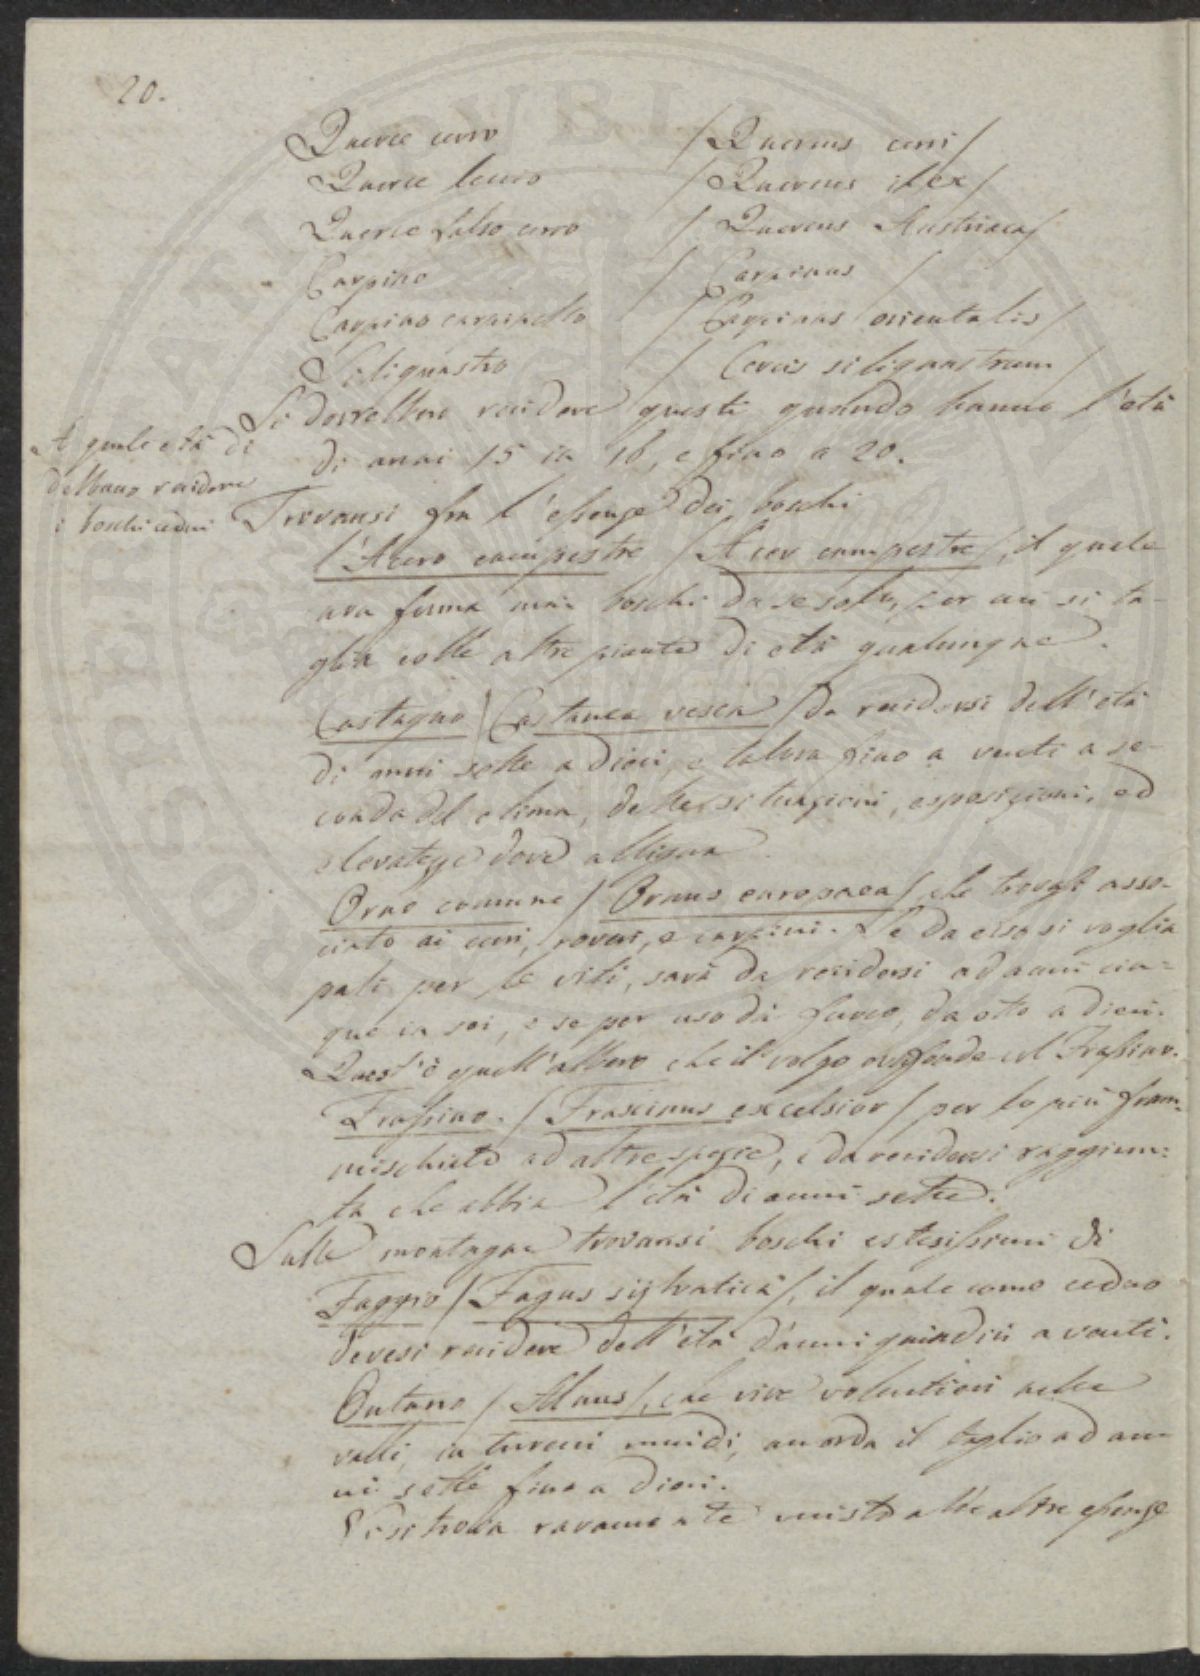 20.
Querce cerro /Quercus cerri/
Querce leccio /Quercus ilex/
Querce falso cerro /Quercus Austriaca/
Carpino /Carpinus/
Carpino carpinello /Carpinus orientalis/
Siliquastro /Cercis siliquastrum/
Si dovrebbero recidere questi quando hanno l'età
di anni 15 in 16, e fino a 20.
A quale età di
debbano recidere
i boschi cedui
Trovansi fra l'essenze dei boschi
l'Acero campestre /Acer campestre/, il quale
non forma mai boschi da se solo, per cui si ta-
glia colle altre piante di età qualunque.
Castagno /Castanea vesca/ da recidersi dell'età
di anni sette a dieci, e talora fino a venti a se-
conda del clima, delle situazioni, esposizioni, ed
elevatezze dove alligna
Orno comune /Ornus europaea/ che trovasi asso-
ciato ai cerri, roveri, e carpini. Se da esso si voglia
pali per le viti, sarà da recidersi ad anni cin=
que in sei, e se per uso di fuoco, da otto a dieci.
Quest'è quell'albero che il volgo confonde col Frassino.
Frassino. /Fraxinus excelsior/ per lo più fram=
mischiato ad altre specie, è da recidersi raggiun=
ta che abbia l'età di anni sette.
Sulle montagne trovansi boschi estesissimi di
Faggio /Fagus sylvatica/, il quale come ceduo
devesi recidere dell'età d'anni quindici a venti.
Ontano /Alnus/, che vive volentieri nelle
valli, in terreni umidi, accorda il taglio ad an=
ni sette fino a dieci.
Vi si trova raramente misto alle altre essenze